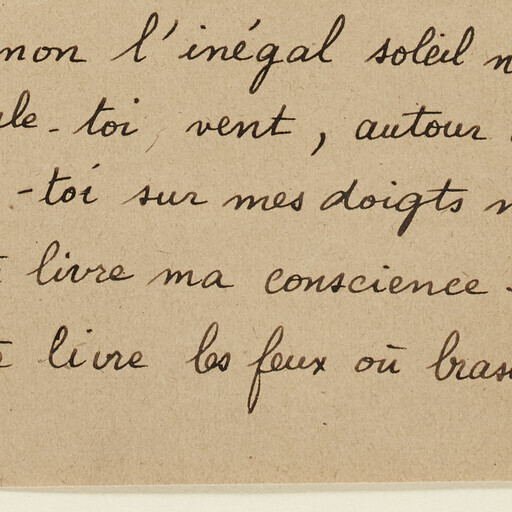 mon l'inégal soleil
-toi vent, autour
-toi sur mes doigts
livre ma conscience
livre les feux où